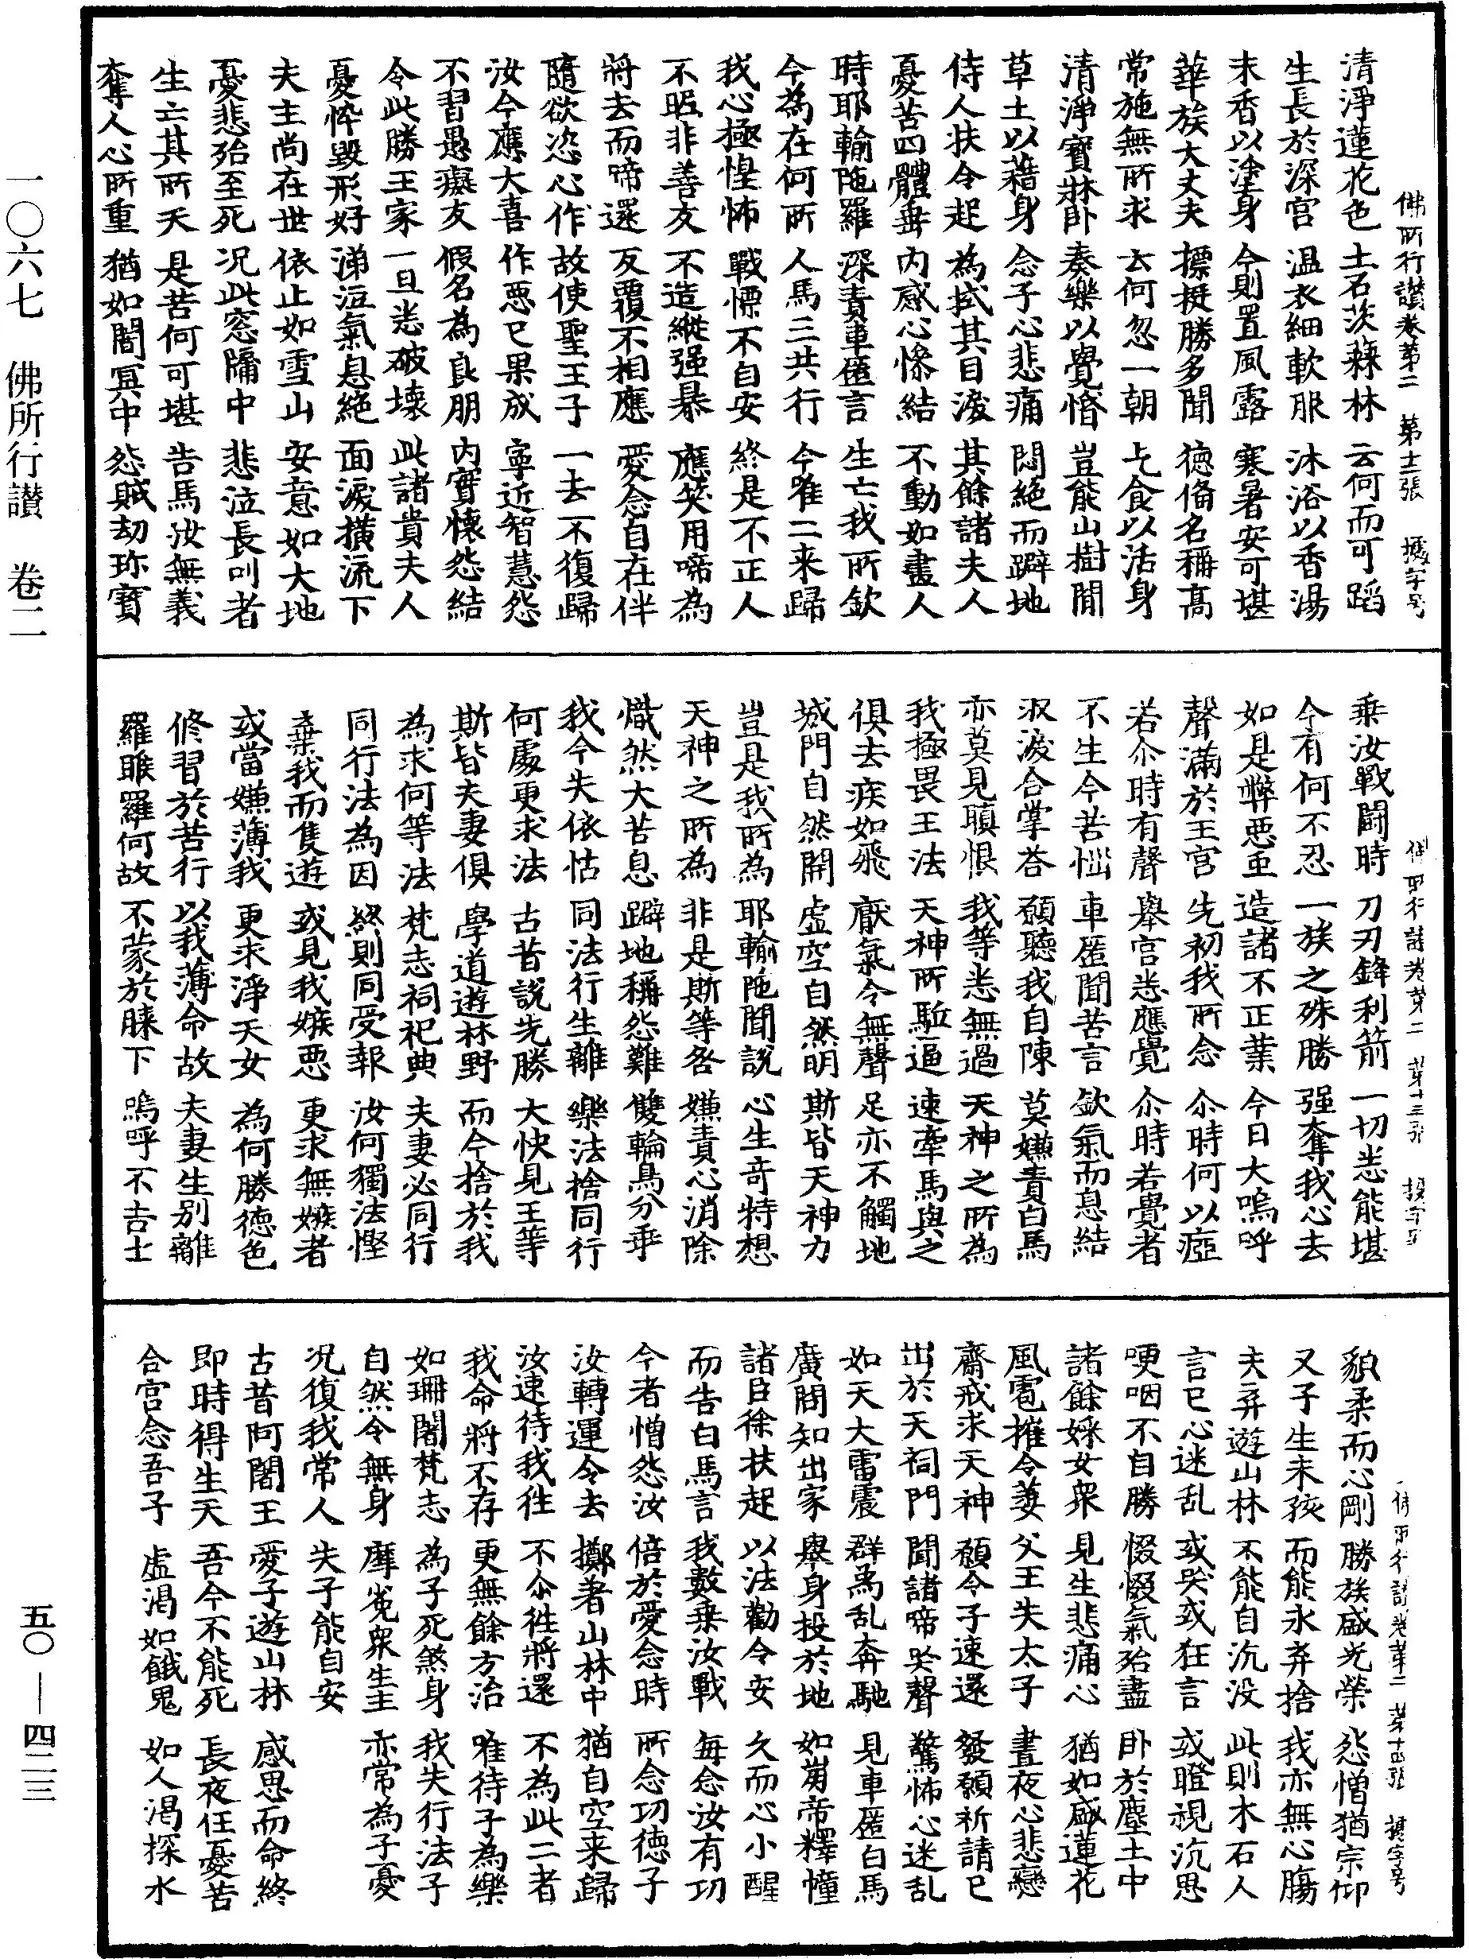 一〇六七　佛所行讃　卷二
五〇—四二三
佛所行讃卷第二　第十二張
清淨蓮花色　土石茨蕀林　云何而可蹈
生長於深宫　温衣細軟服　沐浴以香湯
末香以塗身　今則置風露　寒暑安可堪
華族大丈夫　摽挺勝多聞　徳備名稱高
常施無所求　云何忽一朝　乞食以活身
清淨寶牀卧　奏樂以覺惛　豈能山樹閒
草土以藉身　念子心悲痛　悶絶而躃地
侍人扶令起　為拭其目淚　其餘諸夫人
憂苦四體垂　内感心慘結　不動如畫人
時耶輸陁羅　深責車匿言　生亡我所欽
今為在何所　人馬三共行　今唯二来歸
我心極惶怖　戰慄不自安　終是不正人
不昵非善友　不造縱强暴　應笑用啼為
將去而啼還　反覆不相應　愛念自在伴
隨欲恣心作　故使聖王子　一去不復歸
汝今應大喜　作惡已果成　寧近智慧怨
不習愚癡友　假名為良朋　内實懷怨結
令此勝王家　一旦悉破壞　此諸貴夫人
憂悴毀形好　涕泣氣息絶　面淚横流下
夫主尚在世　依止如雪山　安意如大地
憂悲殆至死　况此窓牖中　悲泣長叫者
生亡其所天　是苦何可堪　告馬汝無義
奪人心所重　猶如闇冥中　怨賊劫珎寳
佛所行讃卷第二　第十三張
乗汝戰鬪時　刀刃鋒利箭　一切悉能堪
今有何不忍　一族之殊勝　强奪我心去
如是弊惡虫　造諸不正業　今日大嗚呼
聲滿於王宫　先初我所念　尒時何以瘂
若尒時有聲　舉宫悉應覺　尒時若覺者
不生今苦惱　車匿聞苦言　飲氣而息結
收淚合掌荅　願聽我自陳　莫嫌責白馬
亦莫見瞋恨　我等悉無過　天神之所為
我極畏王法　天神所駈逼　速牽馬與之
俱去疾如飛　厭氣令無聲　足亦不觸地
城門自然開　虚空自然明　斯皆天神力
豈是我所為　耶輸陁聞説　心生竒特想
天神之所為　非是斯等咎　嫌責心消除
熾然大苦息　躃地稱怨難　雙輪鳥分乖
我今失依怙　同法行生離　樂法捨同行
何處更求法　古昔説先勝　大快見王等
斯皆夫妻俱　學道遊林野　而今捨於我
為求何等法　梵志祠祀典　夫妻必同行
同行法為因　終則同受報　汝何獨法慳
棄我而隻遊　或見我嫉惡　更求無嫉者
或當嫌薄我　更求淨天女　為何勝徳色
修習於苦行　以我薄命故　夫妻生别離
羅睺羅何故　不蒙於膝下　嗚呼不吉士
佛所行讃卷第二　第十四張
貌柔而心剛　勝族盛光榮　怨憎猶宗仰
又子生未孩　而能永弃捨　我亦無心膓
夫弃遊山林　不能自沉没　此則木石人
言已心迷乱　或哭或狂言　或瞪視沉思
哽咽不自勝　惙惙氣殆盡　卧於塵土中
諸餘婇女衆　見生悲痛心　猶如盛蓮花
風雹摧令萎　父王失太子　晝夜心悲戀
齋戒求天神　願令子速還　發願祈請已
出於天祠門　聞諸啼哭聲　驚怖心迷乱
如天大雷震　群馬乱奔馳　見車匿白馬
廣問知出家　舉身投於地　如崩帝釋幢
諸臣徐扶起　以法勸令安　久而心小醒
而告白馬言　我數乗汝戰　每念汝有功
今者憎怨汝　倍於愛念時　所念功徳子
汝轉運令去　擲著山林中　猶自空来歸
汝速待我往　不尒往將還　不為此二者
我命將不存　更無餘方治　唯待子為樂
如珊闍梵志　為子死煞身　我失行法子
自然令無身　摩㝹衆生主　亦常為子憂
况復我常人　失子能自安
古昔阿闍王　愛子遊山林　感思而命終
即時得生天　吾今不能死　長夜住憂苦
合宫念吾子　虚渴如餓鬼　如人渴探水